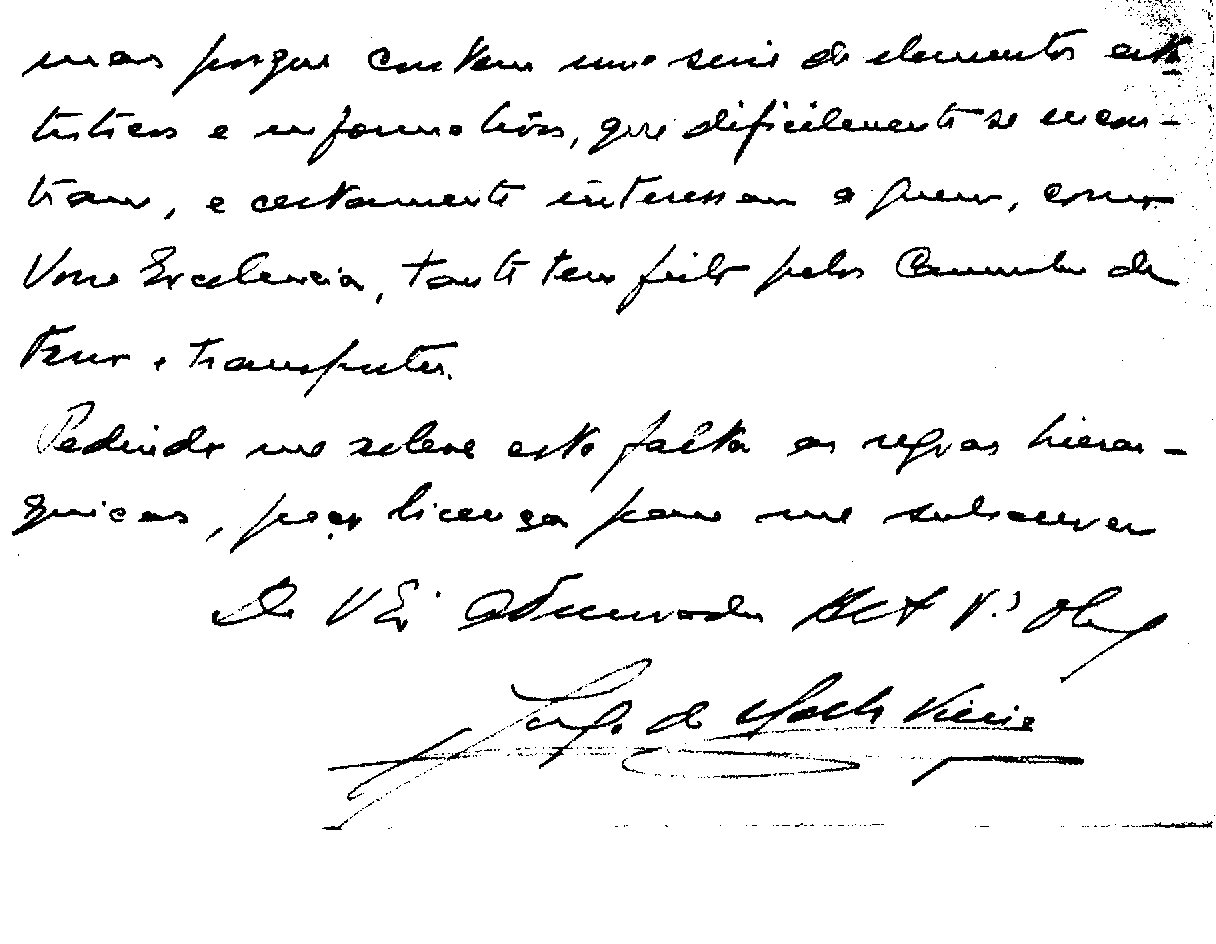 mas porque contem uma serie de elementos esta
tisticos e informativos, que dificilmente se encon-
tram, e certamente interessam a quem, como
Vossa Excelencia, tanto tem feito pelos Caminhos de
ferro e transportes.
Pedindo me releve esta falta as regras hierar-
quicas, peço licença para me subscrever
De V Ex Admirador
de Vieira